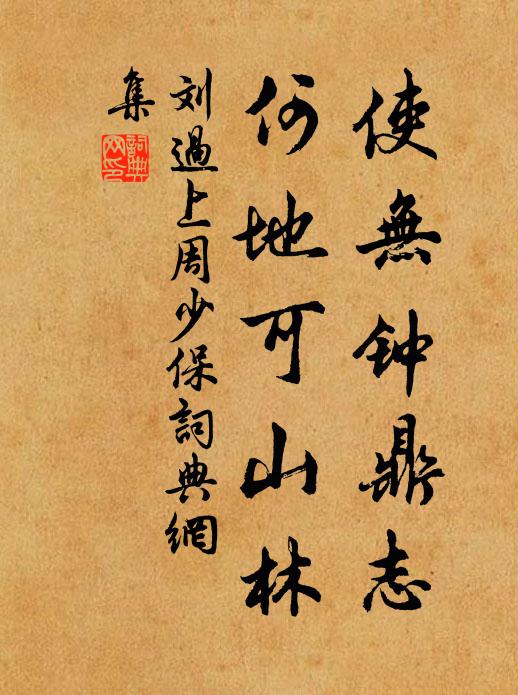 使無钟鼎志
何地可山林
刘過上周少保詞典網
集
詞典
网印